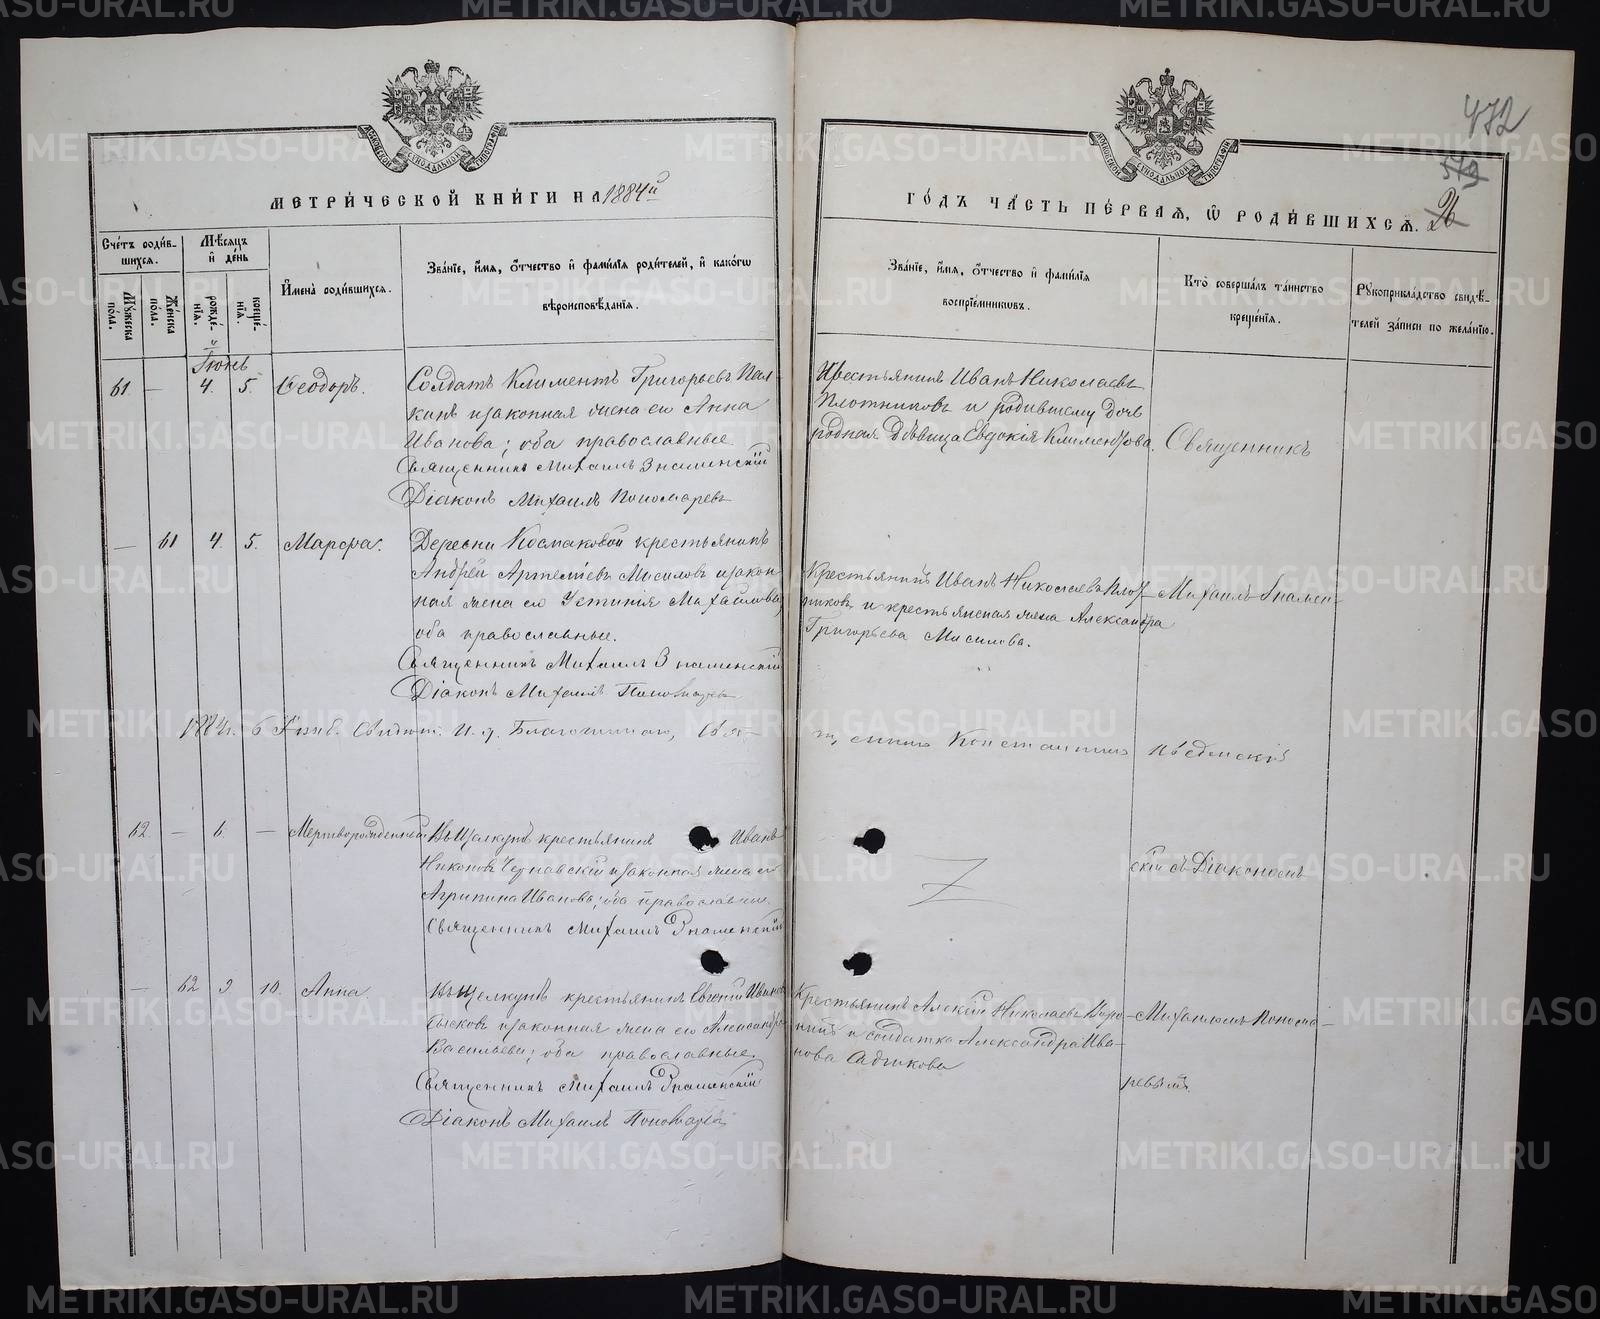 МЕТРИ́ЧЕСКОЙ КНИ́ГИ НА 1884й
ГО́ДЪ ЧА́СТЬ ПЕ́РВАЯ, Ѡ РОДИ́ВШИХСЯ.
472
579
26
Сче́тъ роди́в-
шихся.
Мѣ́сяцъ
и де́нь
Мꙋ́жеска
по́ла.
Же́нска
по́ла.
рожде́-
нія.
креще́-
нія.
Имена̀ роди́вшихся.
Зва́ніе, и́мя, о́тчество и фами́лія роди́телей, и како́гѡ
вѣроисповѣ́данія.
Зва́ніе, и́мя, о́тчество и фами́лія
воспріе́мниковъ.
Кто̀ соверша́лъ та́инство
креще́нія.
Рꙋкоприкла́дство свидѣ́-
телей за́писи по жела́нію.
Іюнь
61 — 4. 5. Ѳеодоръ.
Солдатъ Климентъ Григорьевъ Пал-
кинъ и законная жена его Анна
Иванова; оба православные
Священникъ Михаилъ Знаменскій
Діаконъ Михаилъ Пономаревъ
Крестьянинъ Иванъ Николаевъ
Плотниковъ и родившему дочь
родная дѣвица Евдокія Климентова.
Священникъ
— 61 4. 5. Марѳа.
Деревни Космаковой крестьянинъ
Андрей Артемьевъ Мисиловъ и закон-
ная жена его Устинія Михайлова
оба православные.
Священникъ Михаилъ Знаменскій
Діаконъ Михаилъ Пономаревъ
Крестьянинъ Иванъ Николаевъ Плот-
никовъ и крестьянская жена Александра
Григорьева Мисилова.
Михаилъ Знамен-
1884 г. 6 Благочиннаго, Свя-
щенникъ Константинъ
62 — 6. — Мертворожденный
Въ Щелкунѣ крестьянинъ Иванъ
Никоновъ Чернавскій и законная жена его
Агрипина Иванова; оба православные.
Священникъ Михаилъ Знаменскій
скій съ Діакономъ
— 62 9 10. Анна
Въ Щелкунѣ крестьянинъ Евгеній Ивановъ
и законная жена его Александра
Васильева; оба православные.
Священникъ Михаилъ Знаменскій
Діаконъ Михаилъ Пономаревъ
Крестьянинъ Алексѣй Николаевъ Воро-
нинъ и солдатка Александра Ива-
нова
Михаиломъ Понома-
ревымъ
METRIKI.GASO-URAL.RU